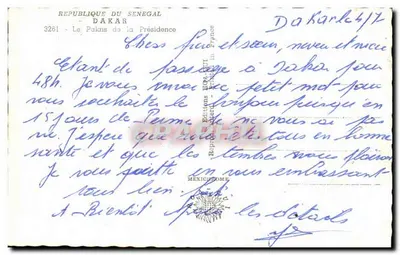 REPUBLIQUE DU SENEGAL
DAKAR
3261 - Le Palais de la Présidence
Dakar le 4/7
Chers frère et sœur, neveu et nièce
Etant de passage à Dakar pour
48h. Je vous envoie ce petit mot pour
vous souhaiter le bonjour puisque en
15 jours de Perme je ne vous ai pas
vu. J'espère que vous êtes tous en bonne
santé et que les timbres vous plairont
Je vous quitte en vous embrassant
tous bien fort.
A Bientôt les détails
MEXICHROME